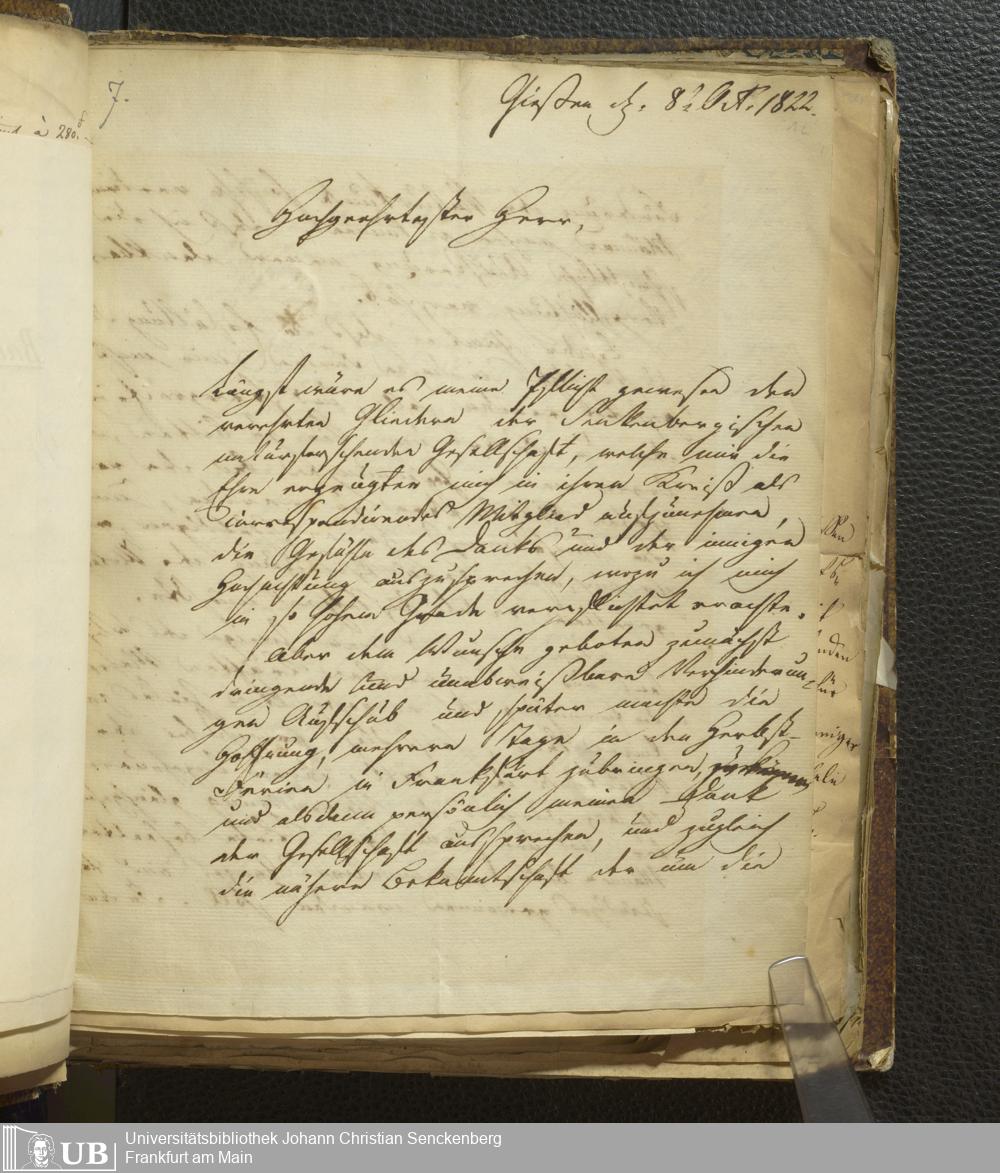 7.
Giesen d. 8t Oct. 1822.
à 280
Hochgeehrtester Herr,
Längst wäre es meine Pflicht gewesen den
verehrten Gliedern der Senkenbergischen
naturforschenden Gesellschaft, welche mir die
Ehre erzeigten mich in ihren Kreiß als
correspondirendes Mitglied aufzunehmen,
die Gefühle des Danks und der innigen
Hochachtung auszusprechen, wozu ich mich
in so hohem Grade verpflichtet erachte.
Aber dem Wunsche geboten zunächst
dringende und unabweißbare Verhinderun-
gen Aufschub und später machte die
Hoffnung, mehrere Tage in den Herbst-
Ferien in Frankfurt zubringen
und alsdann persönlich meinen Dank
der Gesellschaft aussprechen, und zugleich
die nähere Bekantschaft der um die
UB
Universitätsbibliothek Johann Christian Senckenberg
Frankfurt am Main